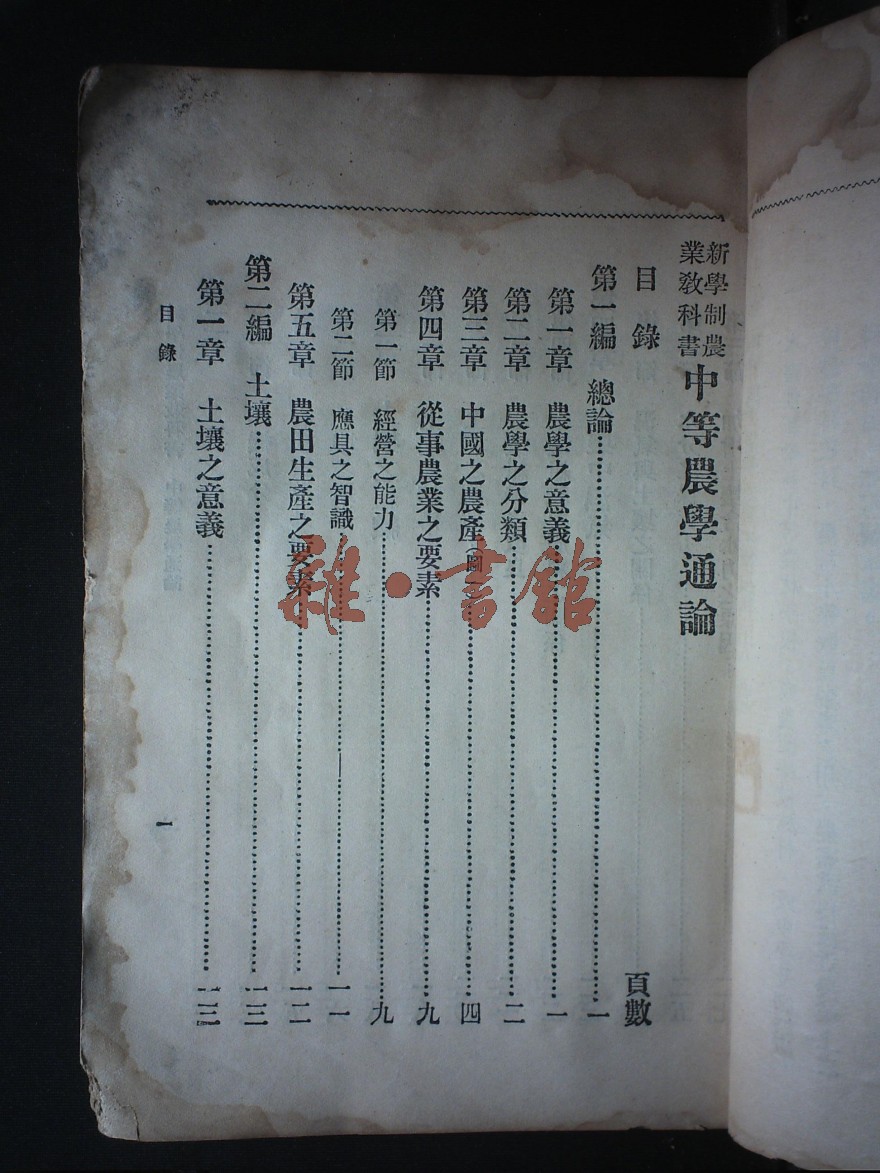 新學制農
業教科書
中等農學通論
目錄 頁數
第一編 總論 一
第一章 農學之意義 一
第二章 農學之分類 二
第三章 中國之農產(圖) 四
第四章 從事農業之要素 九
第一節 經營之能力 九
第二節 應具之智識 一一
第五章 農田生產之要素 一二
第二編 土壤 一三
第一章 土壤之意義 一三
目錄 一
雜·書館